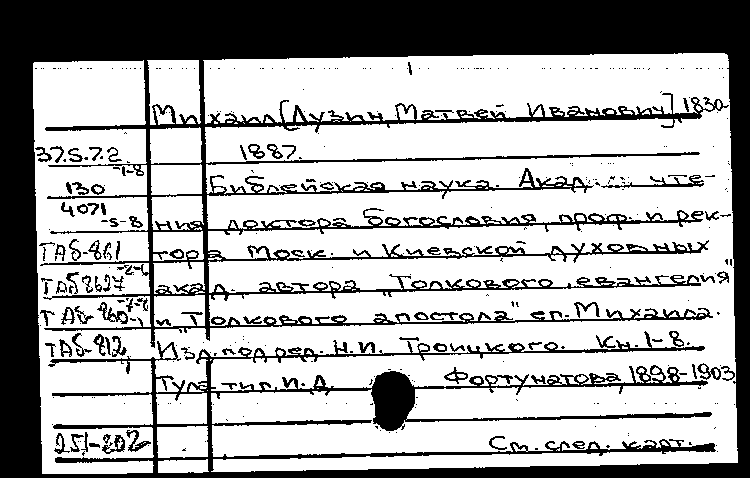 Михаил [Лузин, Матвей Иванович], 1830-
37.5.7.2 1887.
-1-8
130 Библейская наука. Акад. чте-
4071
-5-8 ния доктора богословия, проф. и рек-
ТАБ-861 тора Моск. и Киевской духовных
-2-6
ТАБ 8627 акад., автора "Толкового евангелия"
-7-8
ТАБ-860 и "Толкового апостола" еп. Михаила.
ТАБ-812 Изд. под ред. Н.И. Троицкого. Кн. 1-8.
Тула, тип. И.Д. Фортунатова, 1898-1903.
251-802 См. след. карт.